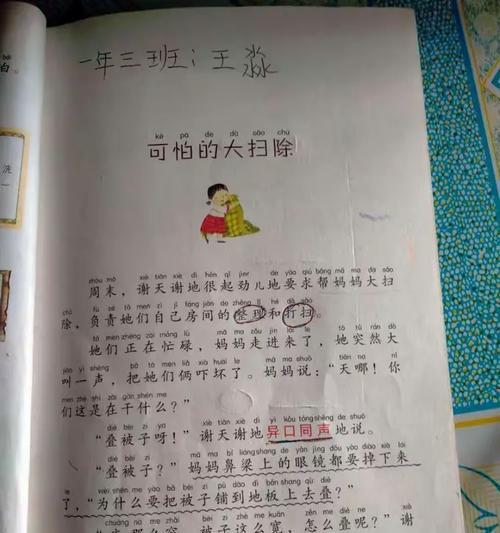 bái
白。
洗
一年三班：王淼
kě pà de dà sǎo chú
可怕的大扫除
zhōu mò xiè tiān xiè dì hěn qǐ jìnr de yāo qiú bāng mā ma dà sǎo
周末，谢天谢地很起劲儿地要求帮妈妈大扫
chú fù zé tā men zì jǐ fáng jiān de zhěng lǐ hé dǎ sǎo
除，负责她们自己房间的整理和打扫。
tā men zhèng zài máng lù mā ma zǒu jìn lái le tā tū rán dà
她们正在忙碌，妈妈走进来了，她突然大
jiào yì shēng bǎ tā men liǎ xià huài le mā ma shuō tiān na nǐ
叫一声，把她们俩吓坏了。妈妈说：“天哪！你
men zhè shì zài gàn shén me
们这是在干什么？”
dié bèi zi ya xiè tiān xiè dì yì kǒu tóng shēng de shuō
“叠被子呀！”谢天谢地异口同声地说。
dié bèi zi mā ma bí liáng shang de yǎn jìng dōu yào diào xià lái
“叠被子？”妈妈鼻梁上的眼镜都要掉下来
le wèi shén me yào bǎ bèi zi pū dào dì bǎn shàng qù dié
了，“为什么要把被子铺到地板上去叠？”
chuáng nà me zhǎi bèi zi zhè me kuān zěn me dié ne xiè
被子这么宽，怎么叠呢？”谢